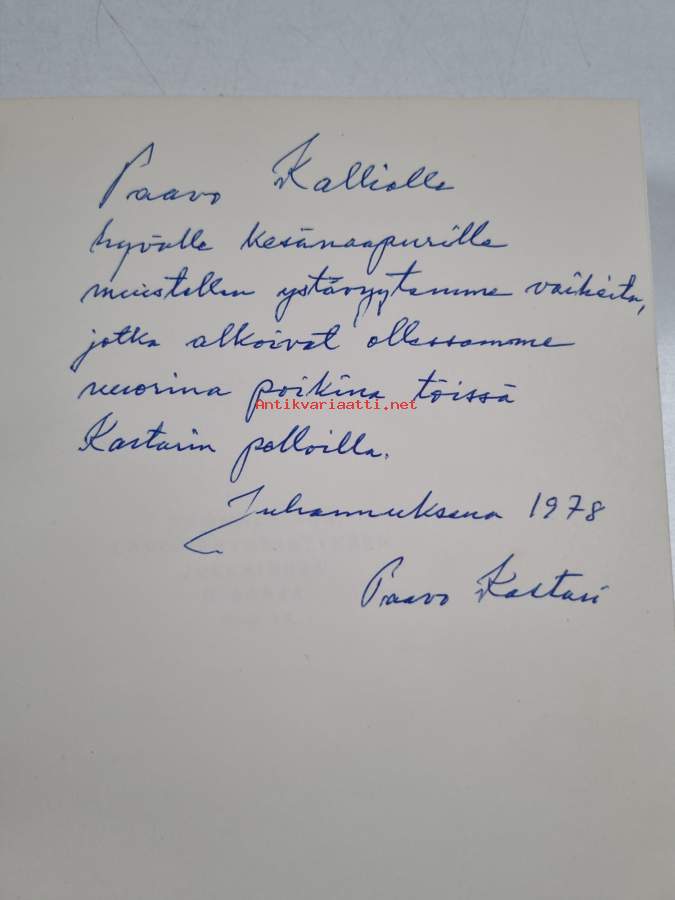 Paavo Kalliolle
hyvälle kesänaapurille
muistellen ystävyytemme vaiheita,
jotka alkoivat ollessamme
nuorina poikina töissä
Antikvariaatti.net
Kastarin pelloilla.
Juhannuksena 1978
Paavo Kastari